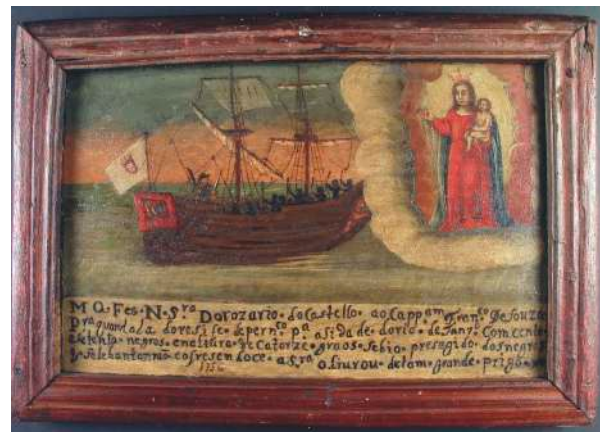 M Q. Fes. N. Sra Dorozario. do Castello. ao Cappam Franco de Souza
Pra quando la dores is e. de pernco pa a sidade. dorio. de Janro. Com cento.
e setenta. negros. enaltura. de Catorze. graos. se bio. presegido. dos negros
q. se lebantarmão
a sra o liurou. de tam. grande. prigo
1756